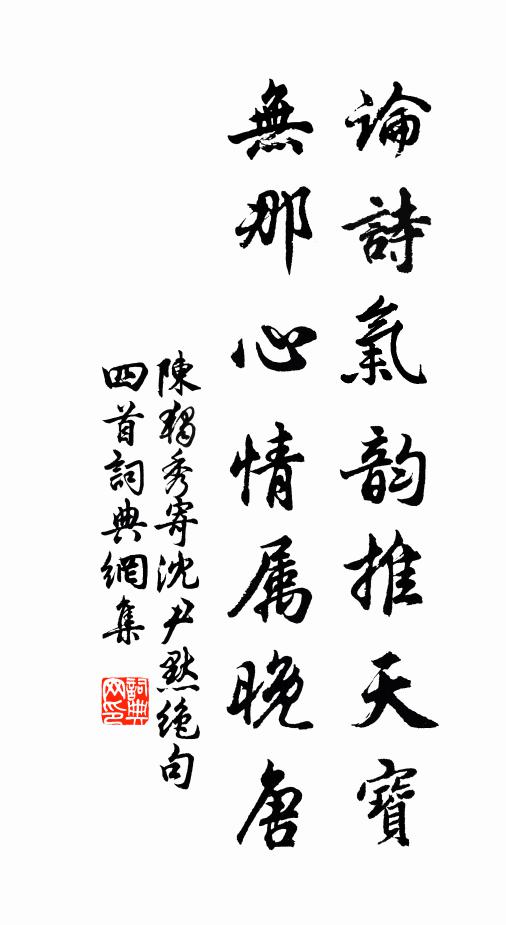 論詩氣韵推天寶
無那心情属晚唐
陳獨秀寄沈尹默絕句
四首詞典網集
詞典
网印